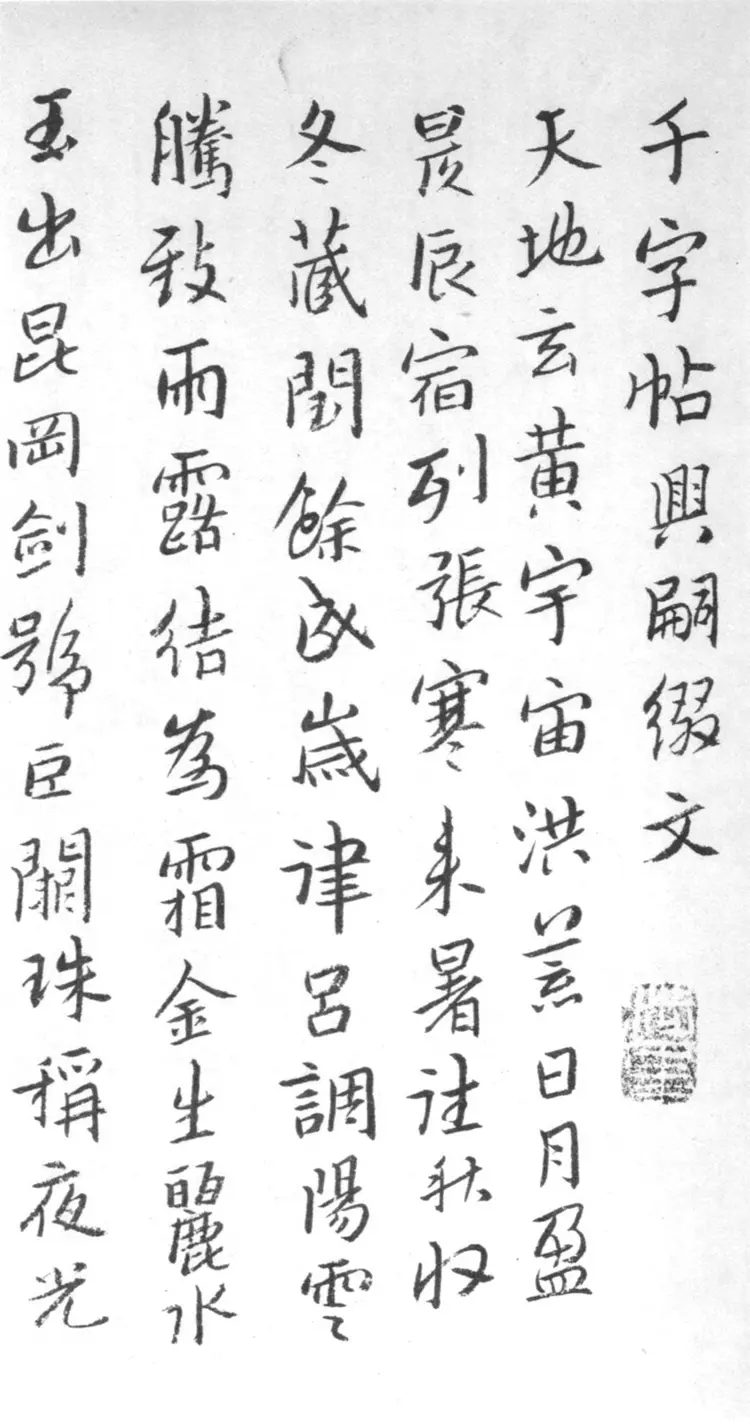 千字帖興嗣綴文
天地玄黃宇宙洪荒日月盈
昃辰宿列張寒来暑往秋収
冬蔵閏餘成歲律呂調陽雲
騰致雨露結為霜金生麗水
玉出昆岡劍號巨闕珠稱夜光